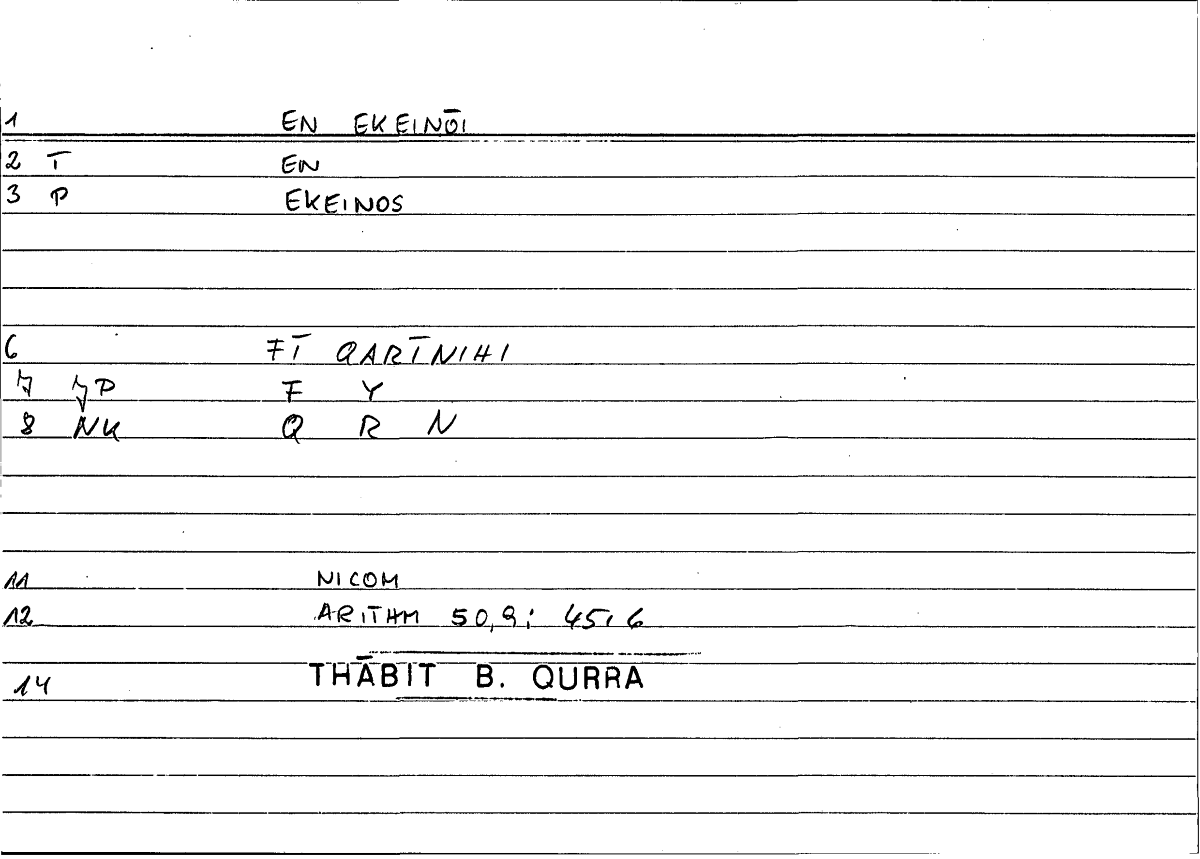 1 EN EKEINŌI
2 T EN
3 P EKEINOS
6 FĪ QARĪNIHI
7 JP F Y
8 NK Q R N
11 NICOM
12 ARITHM 50,9; 45,6
14 THĀBIT B. QURRA